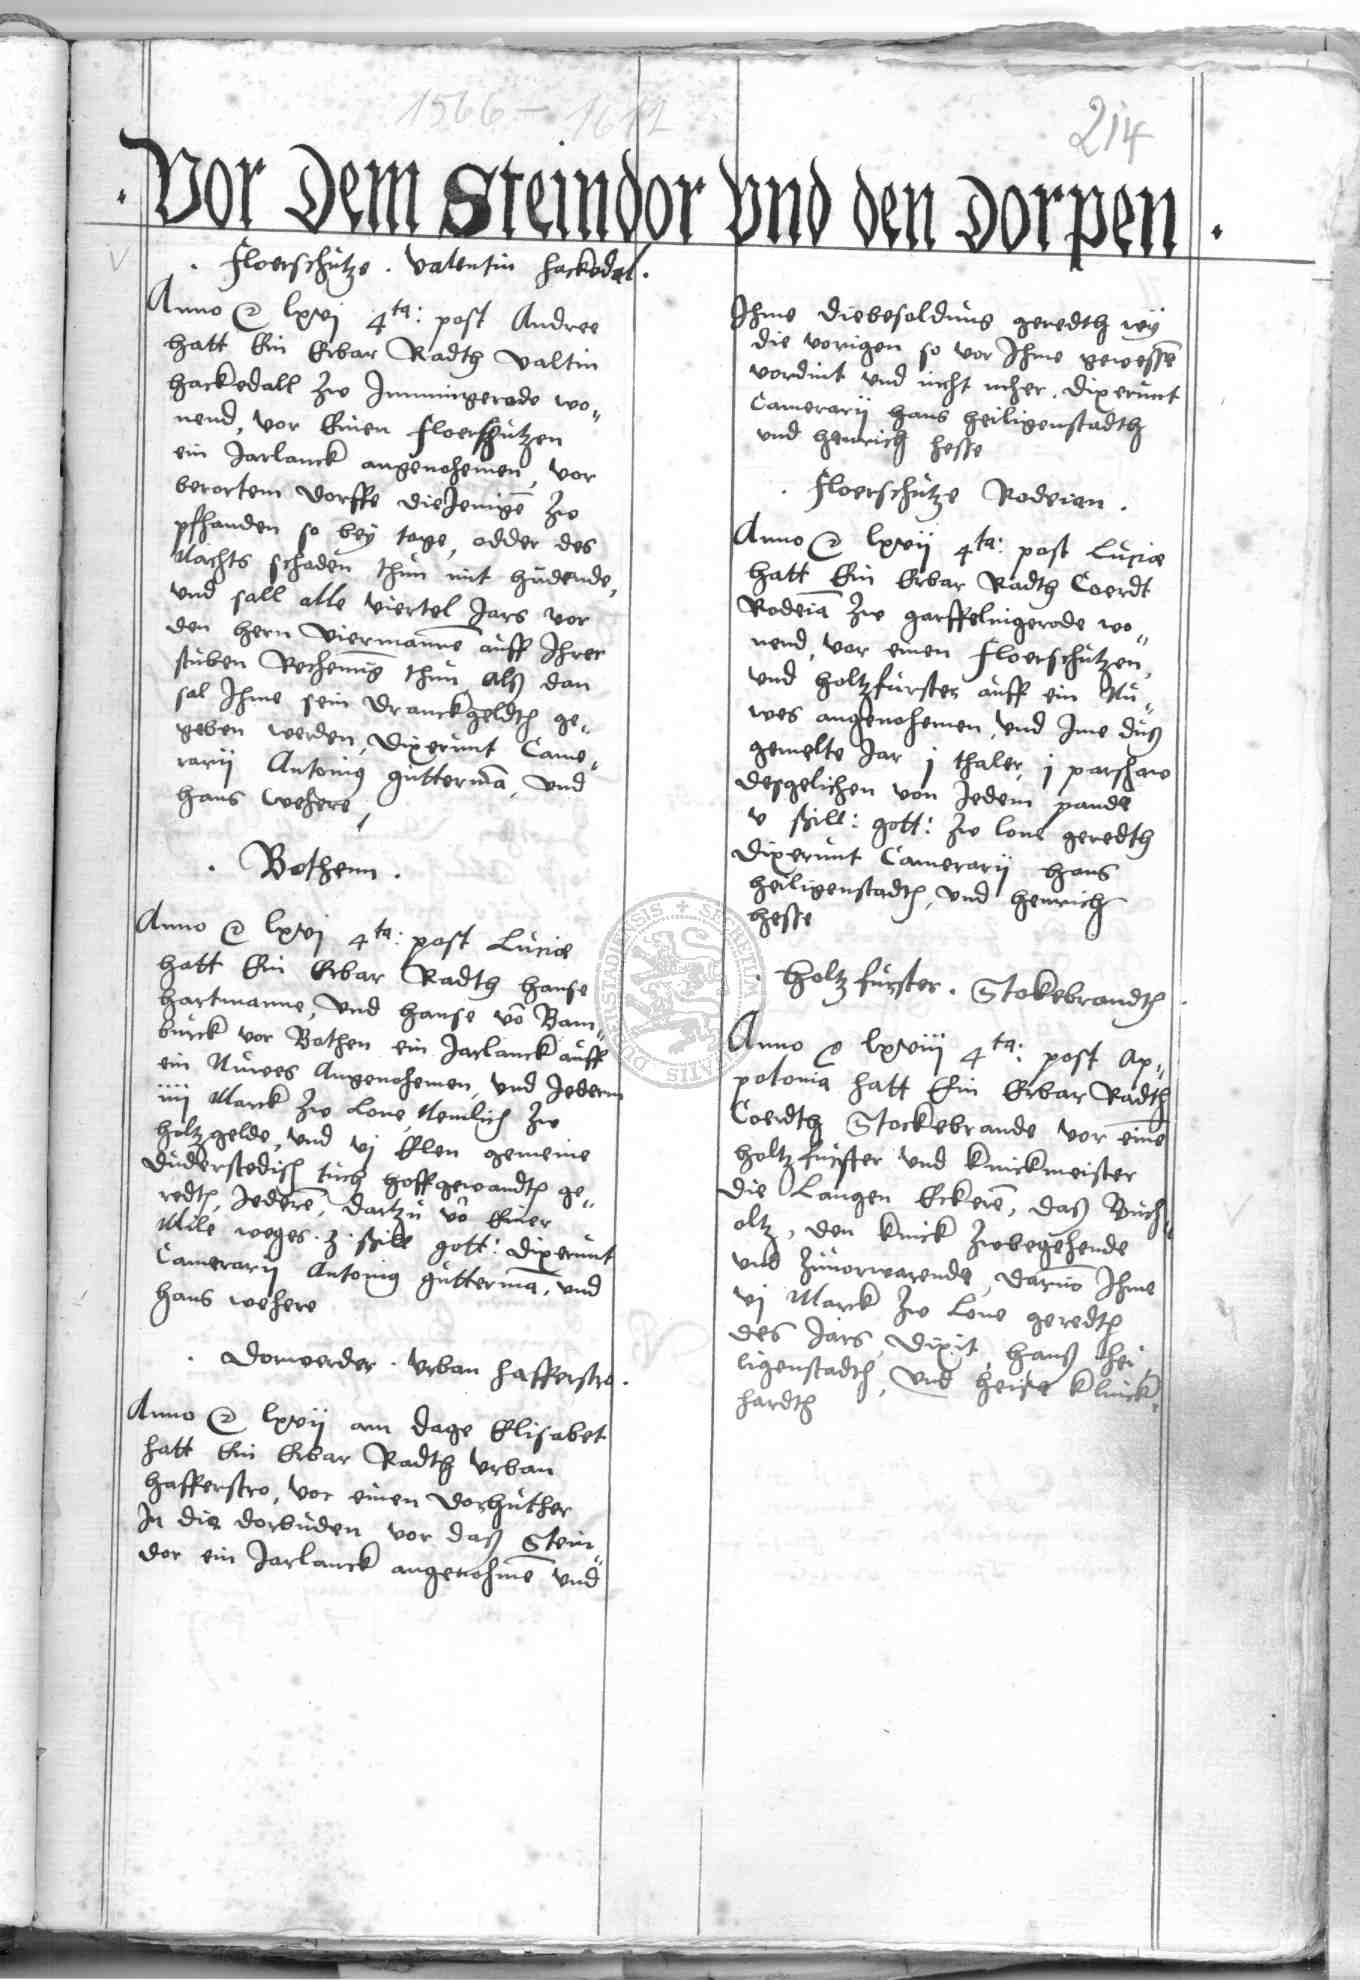 1566 – 1612
214
. Vor Dem Steindor Vnd den Dorpen .
. Floerschütze . Valentin Hackedal .
Anno &c lxvj 4ta: post Andree
hatt Ein Erbar Radth Valtin
Hackedall Zw Immingerode wo„
nend, vor Einen Floerschützen
ein Jarlanck angenohemen, vor
berortem Dorffe dieJenigē Zw
pfhanden so bey tage, adder des
Nachts schaden thün mit hüdende,
vnd sall alle viertel Jars vor
den hern viermanne aüff Ihrer
stüben Rechenüng thün Alß dan
sal Ihme sein Dranckgeldth ge„
geben werden, Dixerünt Came„
rarij Antoniꝰ Gütterma͠, vnd
Hans Wehere,
. Bothenn .
Anno &c lxvj 4ta: post Lücie
hatt Ein Erbar Radth Hanse
Hartmanne, vnd Hanse vō Bam„
bürck vor Bothen ein Jarlanck aüff
ein Nüwes Angenohemen, vnd Jedernn
iiij Marck Zw Lone, Nemlich Zw
holtzgelde, vnd vj Elen gemeine
Düderstedisch tüch hoffgewandth ge„
redth, Jederē, dartzü vō Einer
Mile weges . 3 . ßill gott: Dixerünt
Camerarij Antoniꝰ Gütterma͠, vnd
Hans Wehere
. Dorwerder . Vrban Hafferstro .
Anno &c lxvij am dage Elisabet
hatt Ein Erbar Radth Vrban
Hafferstro, vor einen Dorhüther
In die dorbüden vor daß Stein„
dor ein Jarlanck angenohmē vnd
Ihme diebesoldüng geredth wÿ
die vorigen so vor Ihme gewessē
vordint vnd nicht mher. Dixerünt
Camerarij Hans Heiligenstadth
vnd Henrich Hesse
. Floerschütze Rodeian .
Anno &c lxvij 4ta: post Lücie
hatt Ein Erbar Radth Coerdt
Rodeiā Zw Garffelingerode wo„
nend, vor einen Floerschützen,
vnd holtzfürster aüff ein Nü„
wes angenohemen, vnd Ime düß
gemelte Jar j thaler, j parschwo
desgelichen von Jedem pande
v ßill: gott: Zw lone geredth
Dixerünt Camerarij Hans
Heiligenstadth, vnd Henrich
Hesse
. Holtzfürster . Stokebrandth .
Anno &c lxviij 4ta: post Ap„
polonia hatt Ein Erbar Radth
Coerdth Stockebrande vor einē
holtzfürster vnd knickmeister
die Langen Eckerē, daß Büch„
oltz, den knick Zwbegehende
vnd Züuorwarende, darūo Ihme
vj Marck Zw Lone geredth
des Jars, Dixit, Hanß Hei„
ligenstadth, vnd Heise Klinck„
hardth
SECRETUM DUDERSTADIENSIS